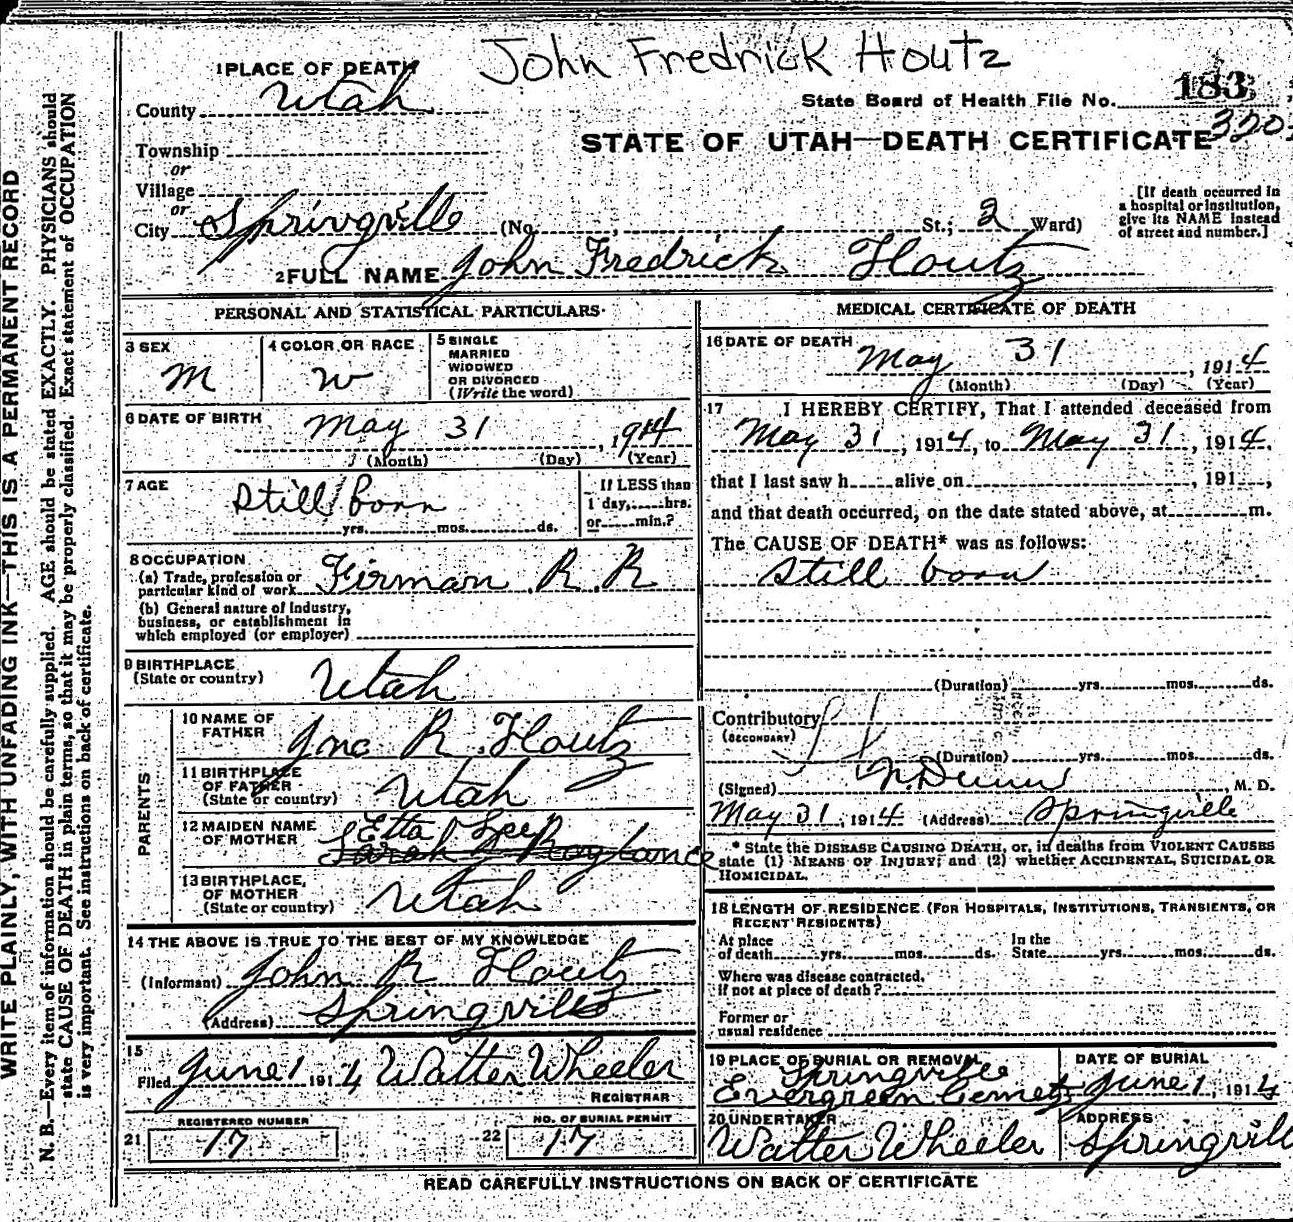 John Fredrick Houtz
1 PLACE OF DEATH
County Utah
State Board of Health File No. 183
320
STATE OF UTAH—DEATH CERTIFICATE
Township
or
Village
or
City Springville (No. , St.; 2 Ward)
[If death occurred in
a hospital or institution,
give its NAME instead
of street and number.]
2 FULL NAME John Fredrick Houtz
PERSONAL AND STATISTICAL PARTICULARS
3 SEX
M
4 COLOR OR RACE
W
5 SINGLE
MARRIED
WIDOWED
OR DIVORCED
(Write the word)
6 DATE OF BIRTH May 31, 1914
(Month) (Day) (Year)
7 AGE
Still born
yrs. mos. ds.
If LESS than
1 day, hrs.
or min.?
8 OCCUPATION
(a) Trade, profession or
particular kind of work Firman R. R
(b) General nature of industry,
business, or establishment in
which employed (or employer)
9 BIRTHPLACE
(State or country) Utah
PARENTS
10 NAME OF
FATHER Jno R. Houtz
11 BIRTHPLACE
OF FATHER
(State or country) Utah
12 MAIDEN NAME
OF MOTHER Etta Lee
Sarah Roylance
13 BIRTHPLACE,
OF MOTHER
(State or country) Utah
14 THE ABOVE IS TRUE TO THE BEST OF MY KNOWLEDGE
(Informant) John R Houtz
(Address) Springville
15
Filed June 1 1914 Walter Wheeler
REGISTRAR
REGISTERED NUMBER
21 17
NO. OF BURIAL PERMIT
22 17
MEDICAL CERTIFICATE OF DEATH
16 DATE OF DEATH
May 31, 1914
(Month) (Day) (Year)
17 I HEREBY CERTIFY, That I attended deceased from
May 31, 1914, to May 31, 1914,
that I last saw h alive on , 191 ,
and that death occurred, on the date stated above, at m.
The CAUSE OF DEATH* was as follows:
Still born
(Duration) yrs. mos. ds.
Contributory
(SECONDARY)
(Duration) yrs. mos. ds.
(Signed) N. Dunn, M. D.
May 31, 1914 (Address) Springville
* State the DISEASE CAUSING DEATH, or, in deaths from VIOLENT CAUSES
state (1) MEANS OF INJURY; and (2) whether ACCIDENTAL, SUICIDAL OR
HOMICIDAL.
18 LENGTH OF RESIDENCE (FOR HOSPITALS, INSTITUTIONS, TRANSIENTS, OR
RECENT RESIDENTS)
At place
of death yrs. mos. ds.
In the
State yrs. mos. ds.
Where was disease contracted,
if not at place of death?
Former or
usual residence
19 PLACE OF BURIAL OR REMOVAL
Springville
Evergreen Cemet
DATE OF BURIAL
June 1, 1914
20 UNDERTAKER
Walter Wheeler
ADDRESS
Springvill
READ CAREFULLY INSTRUCTIONS ON BACK OF CERTIFICATE
WRITE PLAINLY, WITH UNFADING INK—THIS IS A PERMANENT RECORD
N. B.—Every item of information should be carefully supplied. AGE should be stated EXACTLY. PHYSICIANS should
state CAUSE OF DEATH in plain terms, so that it may be properly classified. Exact statement of OCCUPATION
is very important. See instructions on back of certificate.